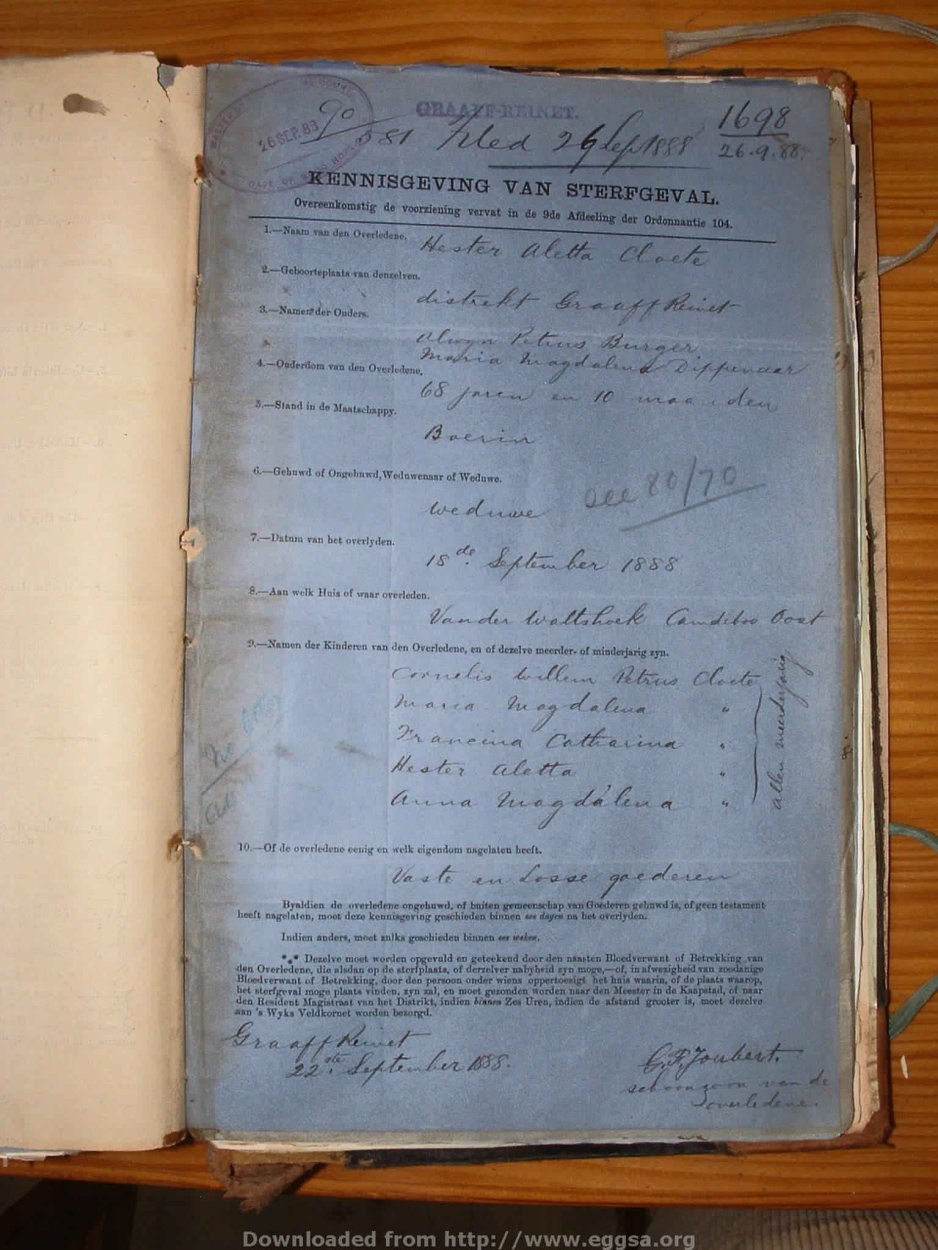 26 SEP. 83
90
581
GRAAFF-REINET.
Filed 26 Sep 1888
1698
26.9.88.
KENNISGEVING VAN STERFGEVAL.
Overeenkomstig de voorziening vervat in de 9de Afdeeling der Ordonnantie 104.
1.—Naam van den Overledene.
Hester Aletta Cloete
2.—Geboorteplaats van denzelven.
distrekt Graaff Reinet
3.—Namen der Ouders.
Alwyn Petrus Burger
Maria Magdalena Dippenaar
4.—Ouderdom van den Overledene,
68 jaren en 10 maanden
5.—Stand in de Maatschappy.
Boerin
6.—Gehuwd of Ongehuwd, Weduwenaar of Weduwe.
weduwe
see 80/70
7.—Datum van het overlyden.
18de September 1888
8.—Aan welk Huis of waar overleden.
Van der Waltshoek Camdeboo Oost
9.—Namen der Kinderen van den Overledene, en of dezelve meerder- of minderjarig zyn.
Cornelis Willem Petrus Cloete
Maria Magdalena "
Francina Catharina "
Hester Aletta "
Anna Magdalena "
allen meerderjarig
10.—Of de overledene eenig en welk eigendom nagelaten heeft.
Vaste en Losse goederen
Byaldien de overledene ongehuwd, of buiten gemeenschap van Goederen gehuwd is, of geen testament
heeft nagelaten, moet deze kennisgeving geschieden binnen zes dagen na het overlyden.
Indien anders, moet zulks geschieden binnen zes weken.
*** Dezelve moet worden opgevuld en geteekend door den naasten Bloedverwant of Betrekking van
den Overledene, die alsdan op de sterfplaats, of derzelver nabyheid zyn moge,—of, in afwezigheid van zoodanige
Bloedverwant of Betrekking, door den persoon onder wiens oppertoezigt het huis waarin, of de plaats waarop,
het sterfgeval moge plaats vinden, zyn zal, en moet gezonden worden naar den Meester in de Kaapstad, of naar
den Resident Magistraat van het Distrikt, indien binnen Zes Uren, indien de afstand grooter is, moet dezelve
aan 's Wyks Veldkornet worden bezorgd.
Graaff Reinet
22ste September 1888.
G. F. Joubert.
schoonzoon van de
overledene.
Downloaded from http://www.eggsa.org